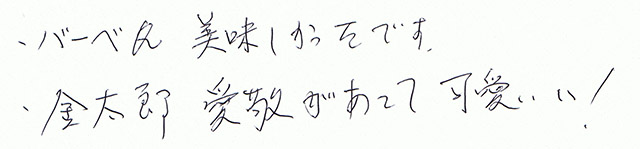 ・バーベQ 美味しかったです。
・金太郎 愛敬があって可愛いい！